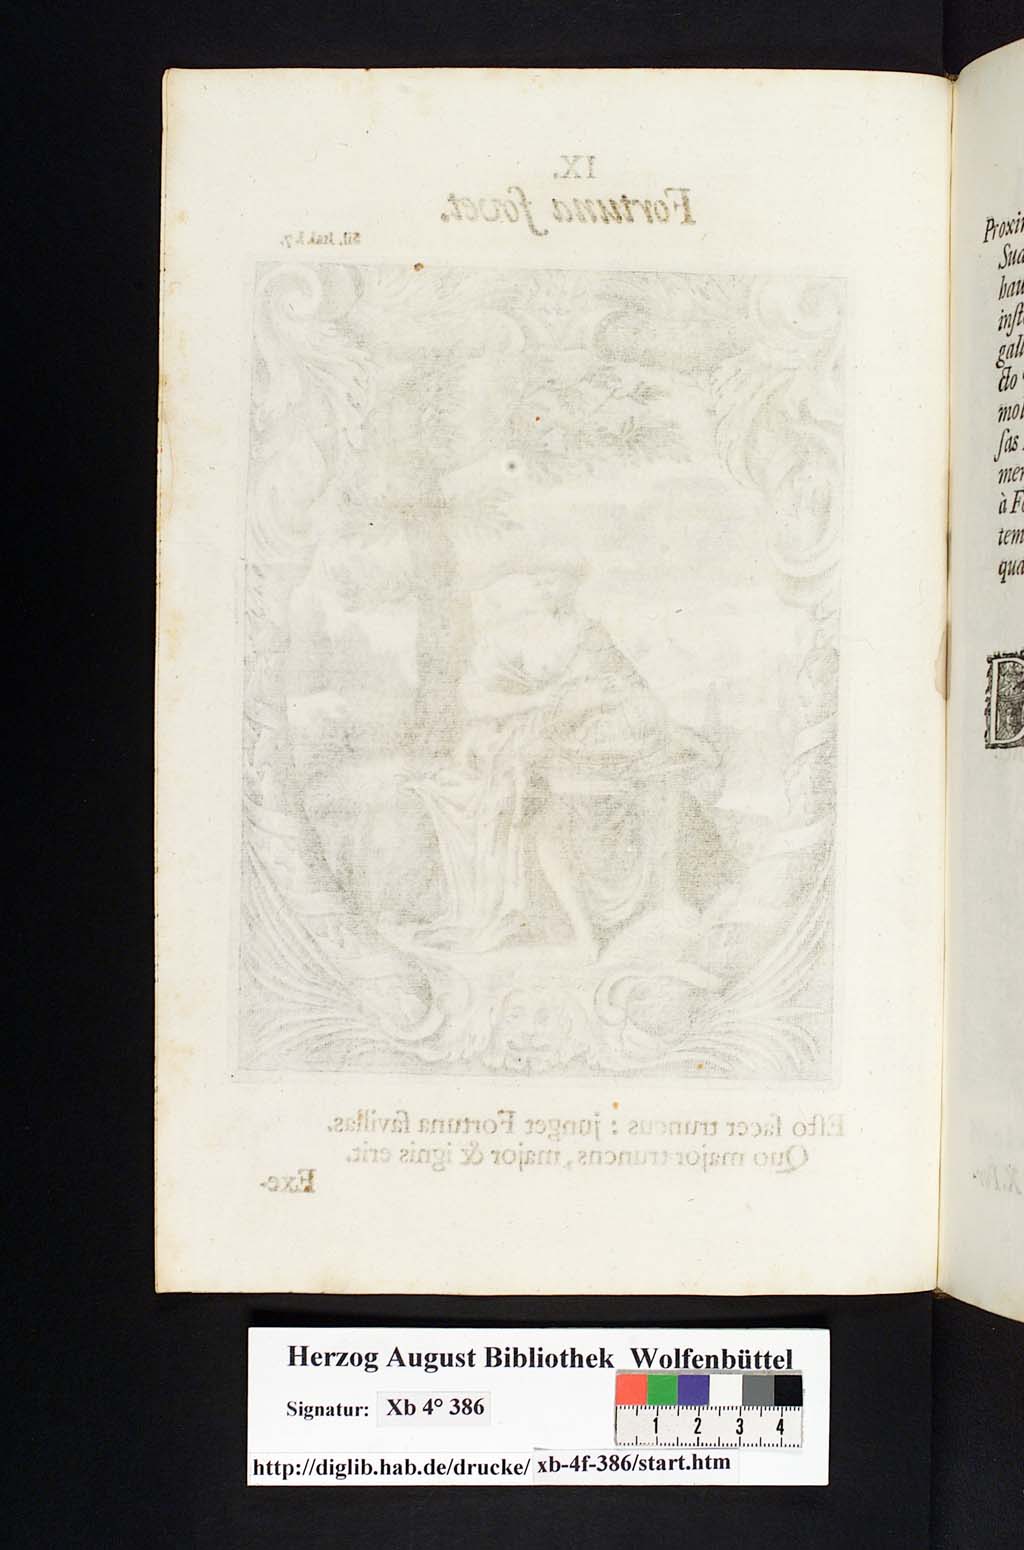 IX.
Fortuna fovet.
Sil. Ital. l. 7.
Esto sacer truncus : junget Fortuna favillas.
Quo major truncus, major & ignis erit.
Exe-
Proxi
Sua
hau
inst
gall
cto
mol
sas
mer
à F
tem
qua
D
X. For-
Herzog August Bibliothek Wolfenbüttel
Signatur: Xb 4° 386
1 2 3 4
http://diglib.hab.de/drucke/ xb-4f-386/start.htm